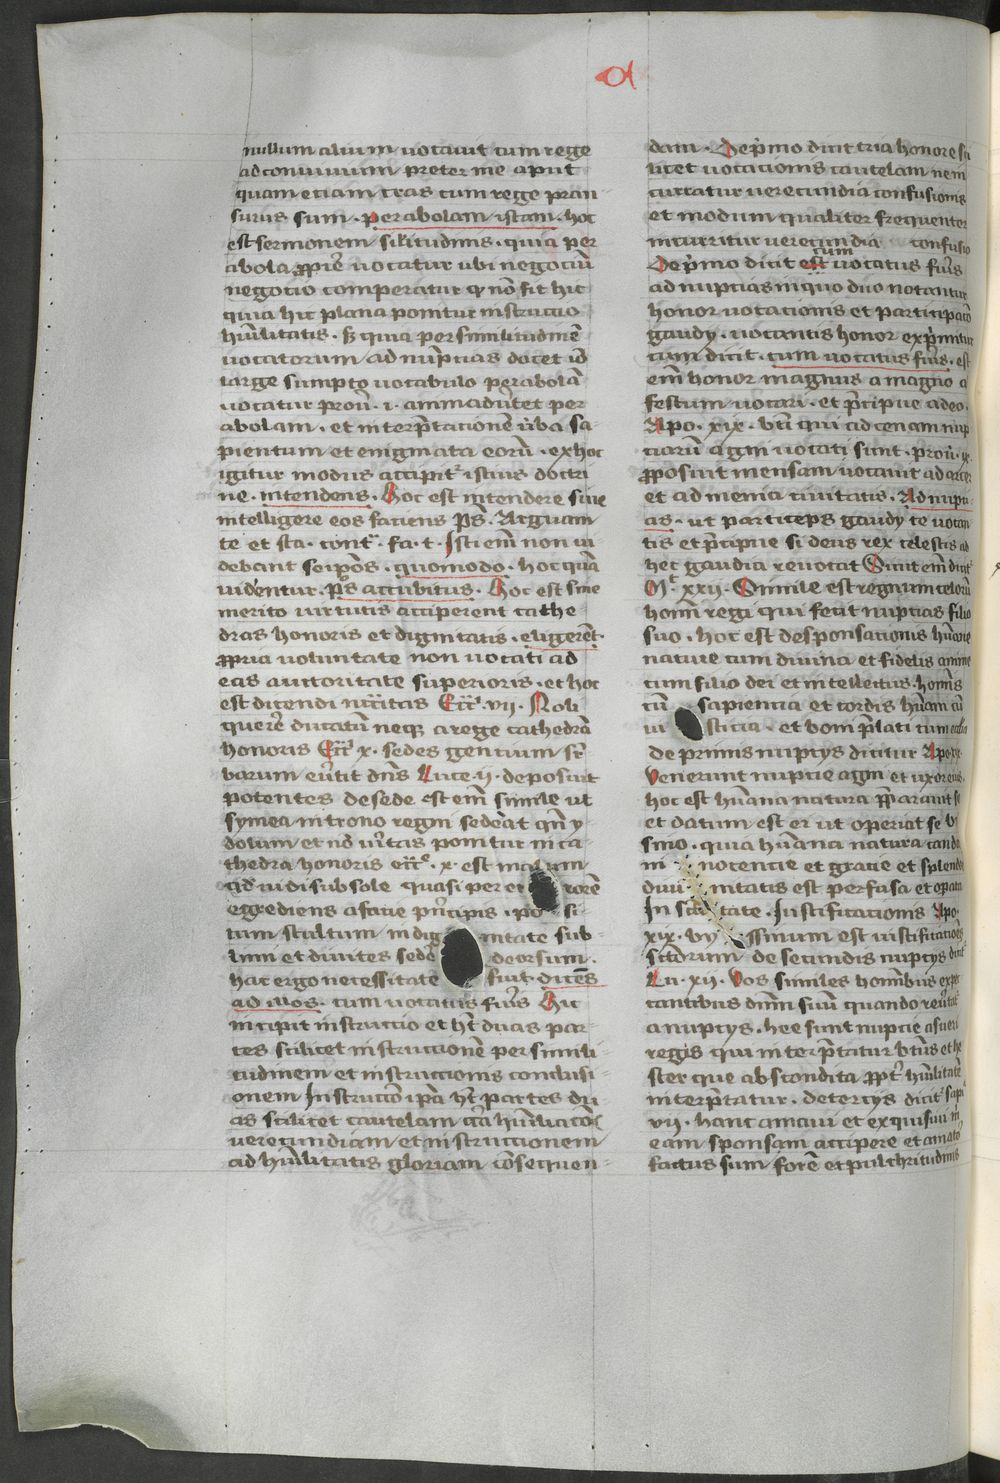 nullum alium uocauit cum rege
ad conuiuium preter me aput
quam etiam cras cum rege pran
surus sum · perabolam istam · hoc
est sermonem silitudinis · quia per
abola ꝓprie uocatur ubi negociū
negocio comperatur qd nō fit hic
quia hic plana ponitur instructio
hūilitatis · sꝫ quia per similitudinē
uocatorum ad nuptias docet iō
large sumpto uocabulo perabolā
uocatur prouͥ · i · animaduͥtet per
abolam · et interp̄tationē uͥba sa
pientum et enigmata eorū · ex hoc
igitur modus accipitͬ istius doctri
ne · intendens · Hoc est intendere siue
intelligere eos faciens pͥs · Arguam
te et sta · contͣ · fa · t · Isti em̄ non ui
debant seipōs · quomodo · hoc quā
uidentur · pͥs accubitus · Hoc est sine
merito uirtutis acciperent cathe
dras honoris et dignitatis · eligerēt ·
ꝓpria uoluntate non uocati ad
eas auctoritate superioris · et hoc
est dicendi Eccͥ · vii · Noli
querere ducatum neqꝫ a rege cathedrā
honoris Eccͥ x · sedes gentium suͥ
barum euͥtit dn̄s Luce · ii · deposuit
potentes de sede est em̄ simile ut
symea in trono regni sedeat qn̄ y
dolum et nō uͥitas ponitur in ca
thedra honoris eccͤ · x · est malum
qd uidi sub sole quasi per er rorē
egrediens a facie pͥncipis · po si
tum stultum in dig nitate sub
limi et diuites sedē deorsum ·
hac ergo necessitate fuit dicēs
ad illos · cum uocatus fuͥs Hic
incipit instructio et hꝫ duas par
tes scilicet instructionē per simili
tudinem et instructionis conclusi
onem Instructō ipā hꝫ partes du
as scilicet cautelam cͣa hūiliatōs
uerecundiam et instructionem
ad hūilitatis gloriam cōsequen
dam · De pͥmo dicit tria honore
licet uocationis cautelam nem
curratur uerecundia confusionis
et modum qualiter frequenter
incurritur uerecundia confusio
De pͥmo dicit est cum uocatus fuͥs
ad nuptias in quo duo notantur
honor uocationis et participatō
gaudy · uocantis honor expͥmitur
cum dicit · cum uocatus fuͥs · est
em̄ honor magnus a magno a
festum uocari · et p̄cipue a deo ·
Apo · xix · bt̄i qui ad cenam nup
ciarū agni uocati sunt · prouͥ · ix ·
ꝓposuit mensam uocauit ad arcē
et ad menia ciuitatis · Ad nupti
as · ut particeps gaudy te uocan
tis et p̄cipue si deus rex celestis ad
hec gaudia reuocat Sicut em̄ dicitͬ
Mͭ xxij · Simile est regnum celorū
homī regi qui fecit nuptias filio
suo · hoc est desponsationis hūane
nature cum diuina et fidelis anime
cum filio dei et intellectus · homīs
cū sapiencia et cordis hūani cū
iu sticia · et boni p̄lati cum ecclia
de primis nuptys dicitur Apo · xix ·
Venerunt nuptie agni et uxor eius
hoc est hūana natura p̄parauit se
et datum est ei ut operiat se by
sino · quia hūana natura candō
in nocencie et gracie et splendō
diui nitatis est perfusa et operta
In sci tate · Iustificationis Apo ·
xix · by ssinum est iustificatiōes
sanctorum de secundis nuptys dicitͬ
Lu · xij · Vos similes homībus expec
tantibus dn̄m suū quando reuͥtatͬ
a nuptys · hee sunt nuptie asueri
regis qui interp̄tatur bt̄us et he
ster que abscondita ꝓptͬ hūilitatē
interp̄tatur · de tercys dicitͬ sapͥ
vij · hanc amaui et exquisiui m
eam sponsam accipere et amatoͬ
factus sum formē et pulchritudinis